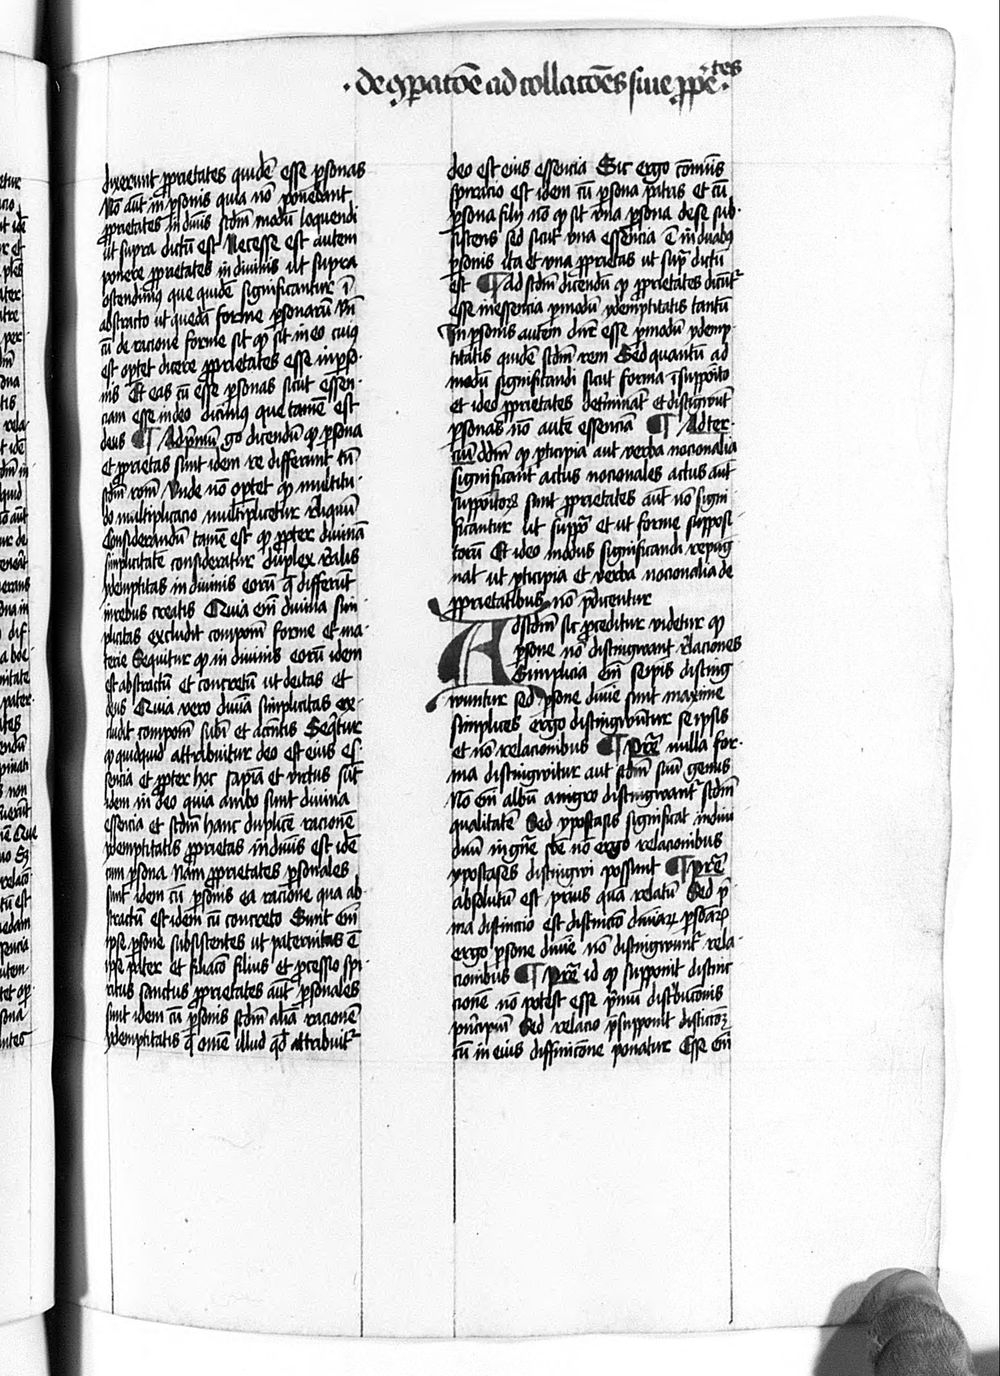 de ꝯparatōe ad collatōes siue ꝓpētes
dixerunt ꝓprietates quidē esse ꝑsonas
Nō aūt in ꝑsonis quia nō ponebant
ꝓprietates in diuīs scdm modū loquendi
ut supra dictū est Necesse est autem
ponere ꝓprietates in diuinis ut supra
ostendimꝰ que quidē significantur ī
abstracto ut quedā forme ꝑsonarū Vn̄
cū de racione forme sit qꝫ sit in eo cuiꝰ
est optet dicere ꝓprietates esse in ꝑso-
nis Et eas cū esse ꝑsonas sicut essen-
ciam esse in deo dicimꝰ que tamē est
deus ¶ Ad pͥmū gͦ dicendū qꝫ ꝑsona
et ꝓprietas sunt idem re differunt tn̄
scdm rōm Vnde nō optet qꝫ multitu-
do multiplicacio multiplicetur reliquū
Considerandū tamē est qꝫ ꝓpter diuinā
simplicitatē consideratur duplex realis
ydemptitas in diuinis eorū q̄ differūt
in rebus creatis Quia em̄ diuina sim-
plicitas excludit compom̄ forme et ma-
terie Sequitur qꝫ in diuinis eorū idem
est abstractū et concretū ut deitas et
deus Quia vero diuīa simplicitas ex-
cludit compom̄ subī et accn̄tis Seqͥtur
qꝫ quidquid attribuitur deo est eius es-
sencia et ꝓpter hoc sapīa et virtus sūt
idem in deo quia ambo sunt diuina
essencia et scdm hanc duplicē racionē
ydemptitatis ꝓprietas in diuīs est idē
cum ꝑsona Nam ꝓprietates ꝑsonales
sunt idem cū ꝑsonis ea racione qua ab-
stractū est idem cū concreto Sunt em̄
ipse ꝑsone subsistentes ut paternitas ē
ipse pater et filiacō filius et ꝓcessio spi-
ritus sanctus ꝓprietates aūt ꝑsonales
sunt idem cū ꝑsonis scdm aliā racionē
ydemptitatis q̄ omē illud qd̄ attribuitᷣ
deo est eius essencia Sic ergo cōmūis
spiracio est idem cū ꝑsona patris et cū
ꝑsona filij nō qꝫ sit vna ꝑsona de se sub-
sistens sed sicut vna essencia ē in duabꝰ
ꝑsonis ita et vna ꝓprietas ut supͣ dictū
est ¶ Ad scdm dicendū qꝫ ꝓprietates dicūtᷣ
esse in essencia ꝑ modū ydemptitatis tantū
In ꝑsonis autem dicūtᷣ esse ꝑ modū ydemp-
titatis quidē scdm rem Sed quantū ad
modū significandi sicut forma ī suppoīto
et ideo ꝓprietates determināt et distigwūt
ꝑsonas nō autē essenciā ¶ Ad ter-
ciū dd̄m qꝫ ꝑticipia aut verba nocionalia
significant actus nocionales actus aūt
suppoītoꝝ sunt ꝓprietates aūt nō signi-
ficantur ut suppoͣ et ut forme supposi-
torū Et ideo modus significandi repug-
nat ut ꝑticipia et verba nocionalia de
ꝓprietatibus nō p̄dicentur
Ad scdm sic ꝓceditur videtur qꝫ
ꝑsone nō distingwant relaciones
Simplicia em̄ seipis disting-
wuntur sed ꝑsone diuīe sunt maxime
simplices ergo distingwūtur se ipsis
et nō relacionibus ¶ P̄rē nulla for-
ma distingwitur aut scdm suū genus
Nō em̄ albū a nigro distingwantᷣ scdm
qualitatē Sed ypostasis significat indiui-
duū in gn̄e sb̄e nō ergo relacionibus
ypostases distingwi possunt ¶ P̄rē
absolutū est prius quā relatū Sed pͥ-
ma distinctio est distinctō diuinaꝝ ꝑsōaꝝ
ergo ꝑsone diuīe nō distingwuntᷣ rela-
cionibus ¶ P̄rē id qꝫ supponit distinc-
cionē nō potest esse pͥmū distīccionis
pͥncipiū Sed relacio p̄supponit distīctoꝝ
cū in eius diffinicōne ponatur Esse em̄